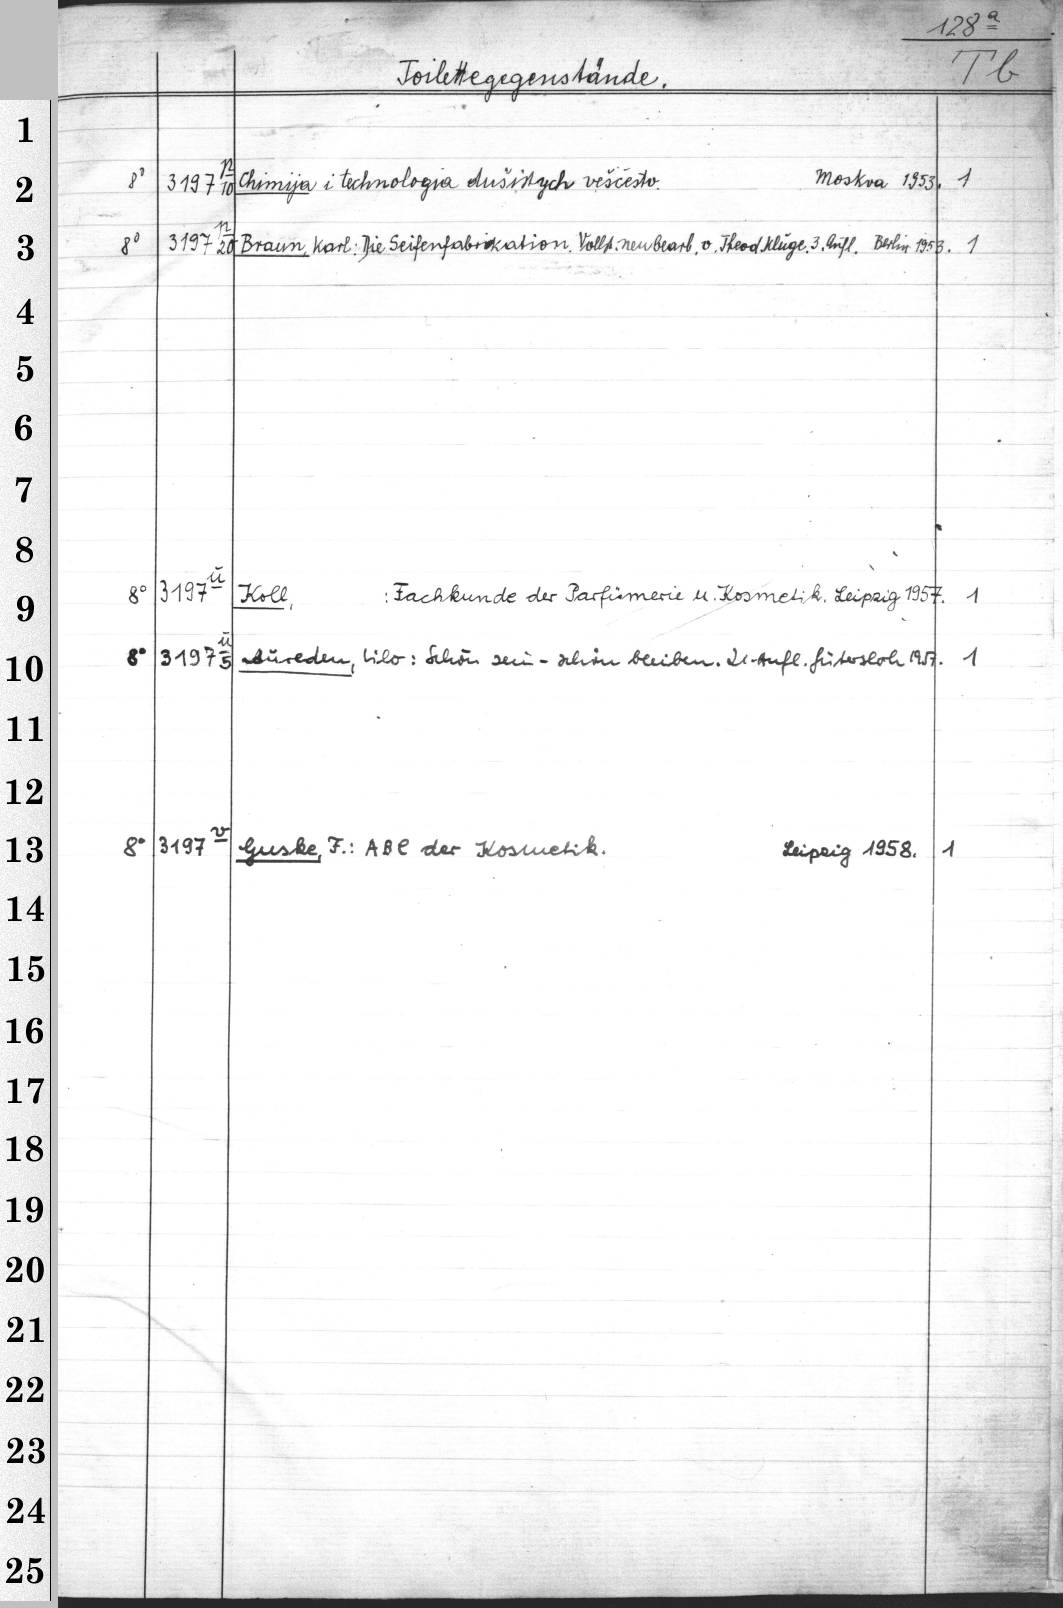 128 a
Tb
Toilettegegenstände.
1
2 8° 3197 n/10 Chimija i technologia dušistych veščestv. Moskva 1953. 1
3 8° 3197 n/20 Braun, Karl: Die Seifenfabrikation. Vollst. neubearb. v. Theod. Kluge. 3. Aufl. Berlin 1953. 1
4
5
6
7
8
9 8° 3197 ü Koll, : Fachkunde der Parfümerie u. Kosmetik. Leipzig 1957. 1
10 8° 3197 ü/5 Aureden, Lilo: Schön sein - schön bleiben. 21. Aufl. Gütersloh 1957. 1
11
12
13 8° 3197 v Guske, F.: ABC der Kosmetik. Leipzig 1958. 1
14
15
16
17
18
19
20
21
22
23
24
25